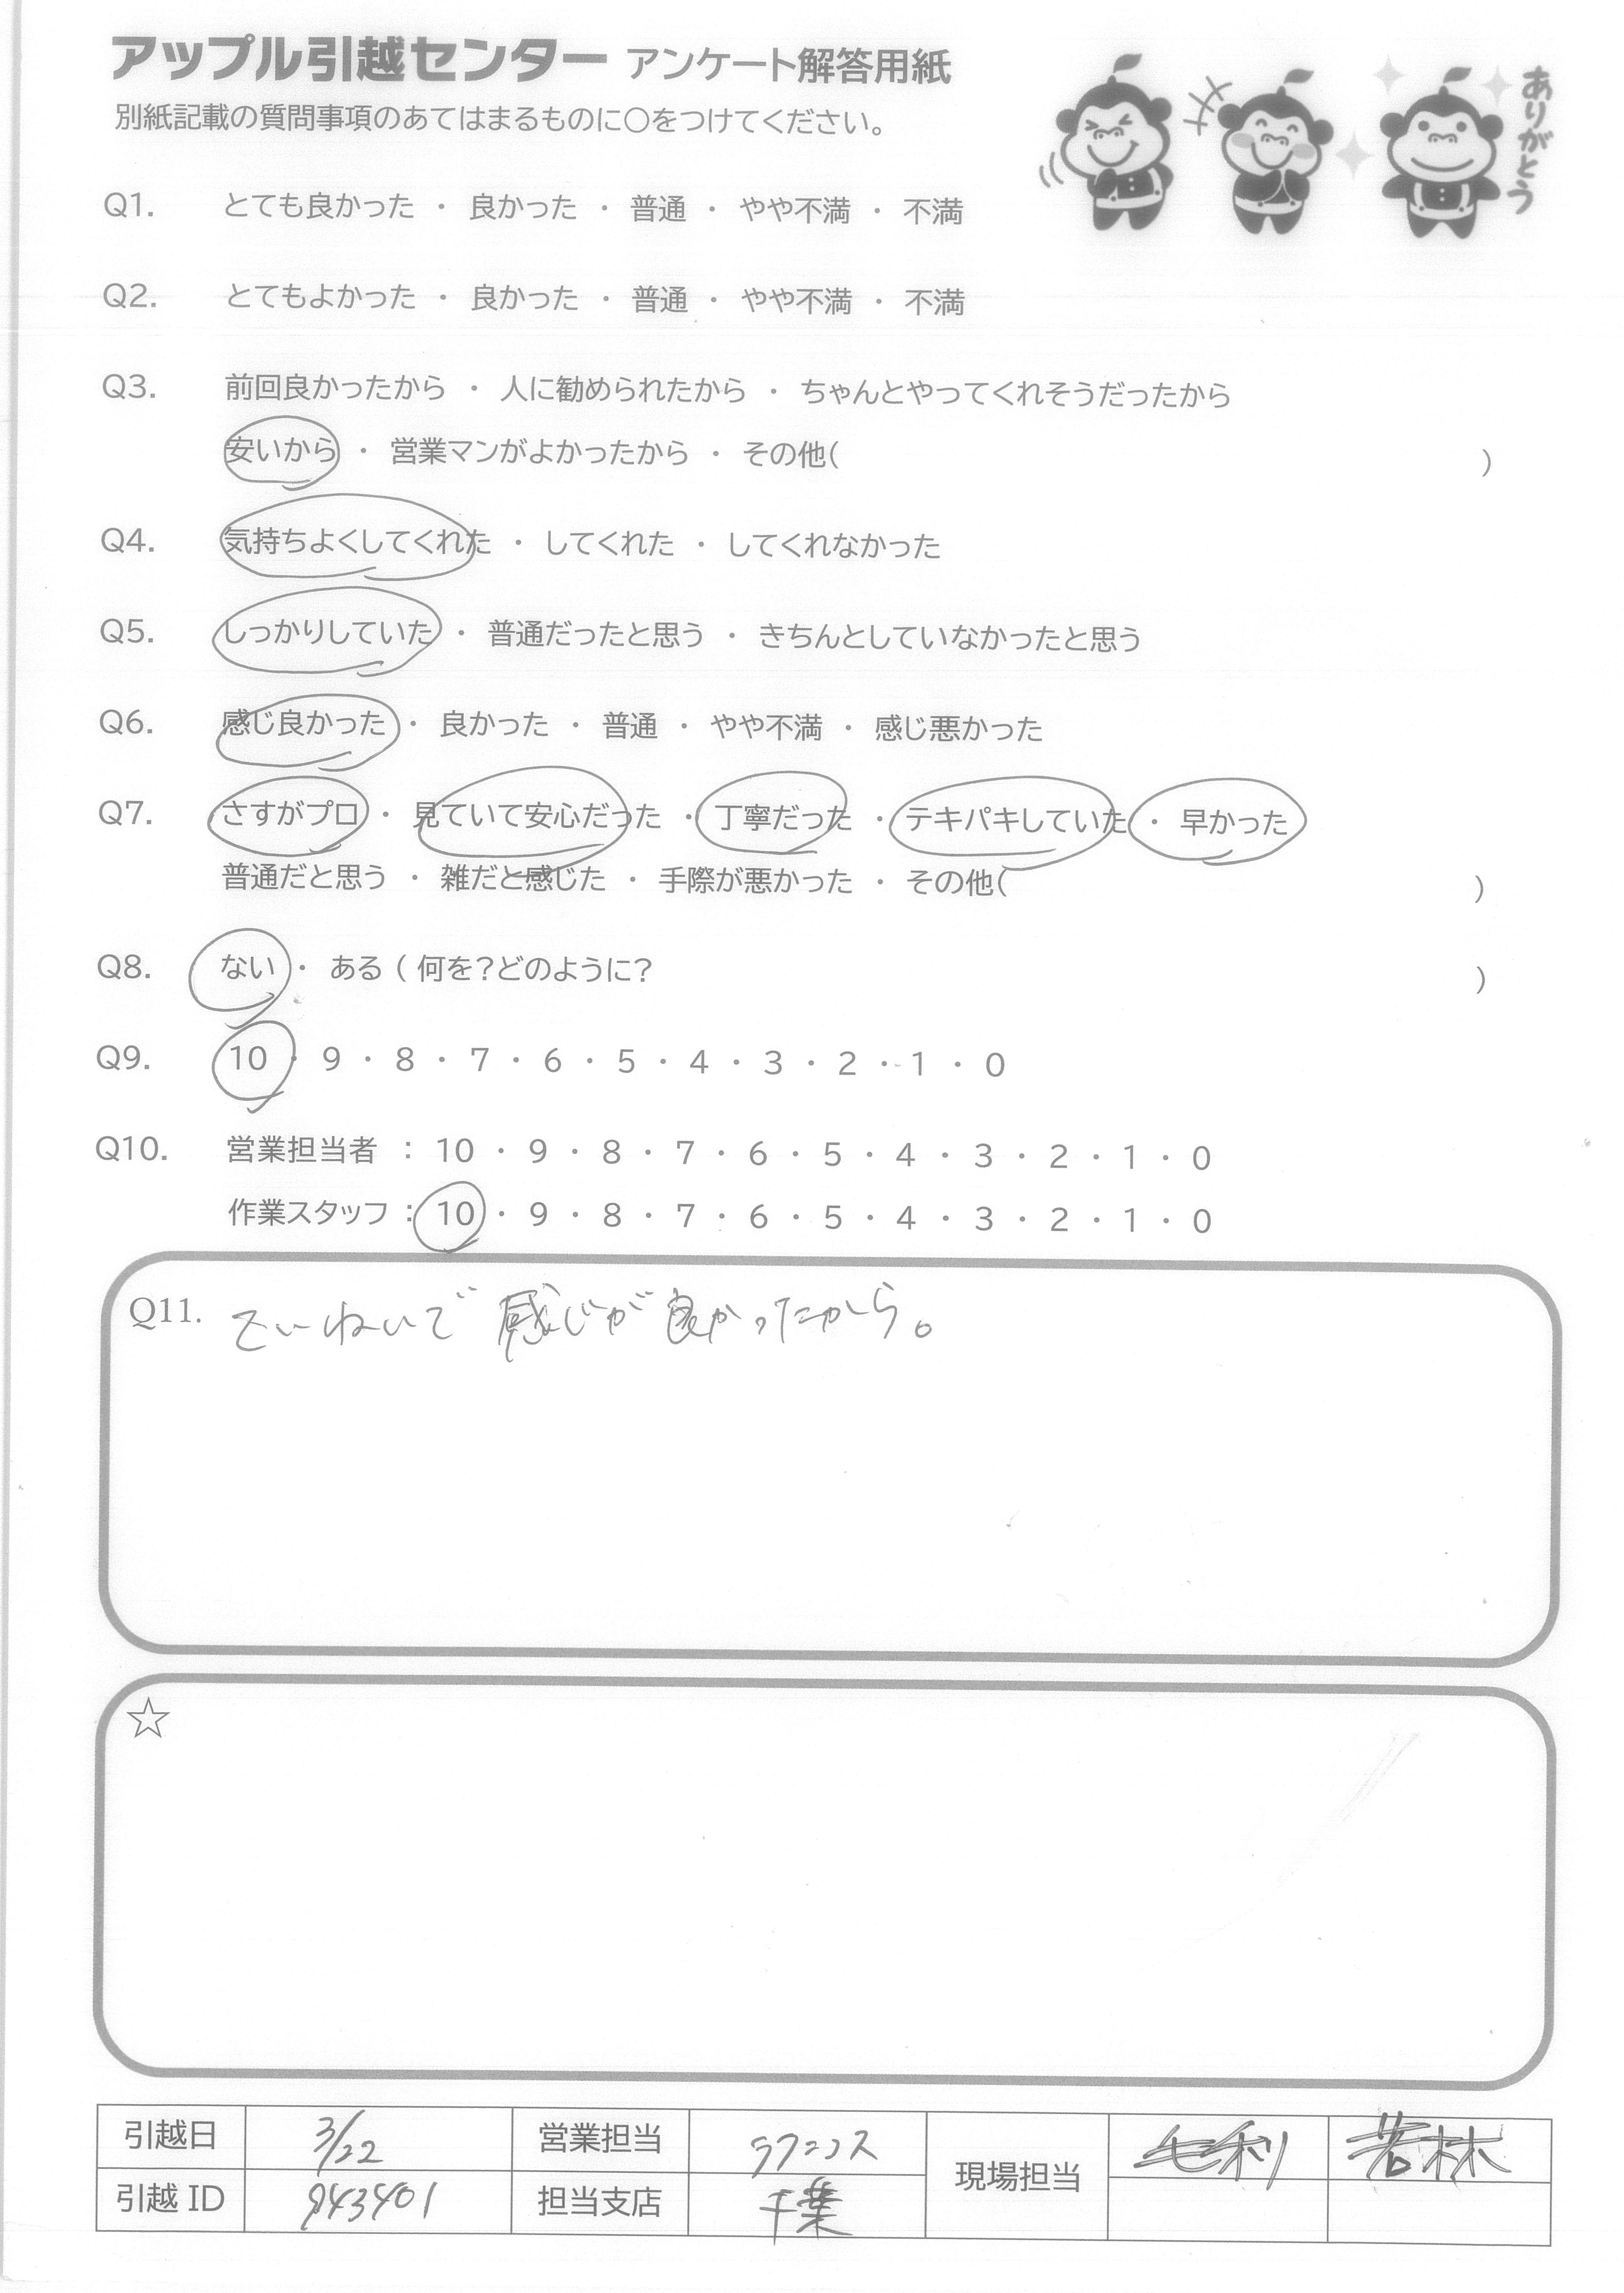 アップル引越センター アンケート解答用紙
別紙記載の質問事項のあてはまるものに〇をつけてください。
ありがとう
Q1. とても良かった ・ 良かった ・ 普通 ・ やや不満 ・ 不満
Q2. とてもよかった ・ 良かった ・ 普通 ・ やや不満 ・ 不満
Q3. 前回良かったから ・ 人に勧められたから ・ ちゃんとやってくれそうだったから
安いから ・ 営業マンがよかったから ・ その他( )
Q4. 気持ちよくしてくれた ・ してくれた ・ してくれなかった
Q5. しっかりしていた ・ 普通だったと思う ・ きちんとしていなかったと思う
Q6. 感じ良かった ・ 良かった ・ 普通 ・ やや不満 ・ 感じ悪かった
Q7. さすがプロ ・ 見ていて安心だった ・ 丁寧だった ・ テキパキしていた ・ 早かった
普通だと思う ・ 雑だと感じた ・ 手際が悪かった ・ その他( )
Q8. ない ・ ある ( 何を?どのように? )
Q9. 10 ・ 9 ・ 8 ・ 7 ・ 6 ・ 5 ・ 4 ・ 3 ・ 2 ・ 1 ・ 0
Q10. 営業担当者 : 10 ・ 9 ・ 8 ・ 7 ・ 6 ・ 5 ・ 4 ・ 3 ・ 2 ・ 1 ・ 0
作業スタッフ : 10 ・ 9 ・ 8 ・ 7 ・ 6 ・ 5 ・ 4 ・ 3 ・ 2 ・ 1 ・ 0
Q11. ていねいで感じが良かったから。
☆
引越日 3/22 営業担当 現場担当 毛利 若林
引越 ID 943401 担当支店 千葉